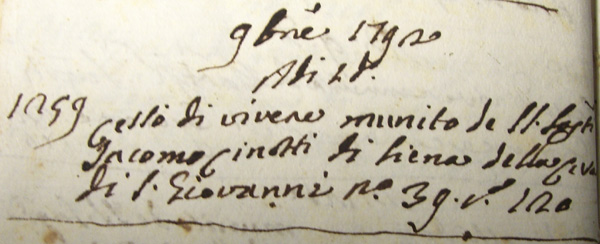 9bre 1792
Adi d.o
1259 Cessò di vivere munito de SS. Sagti
Giacomo Ginotti di Siena della Cura
di S. Giovanni n.o 39. v.o 120